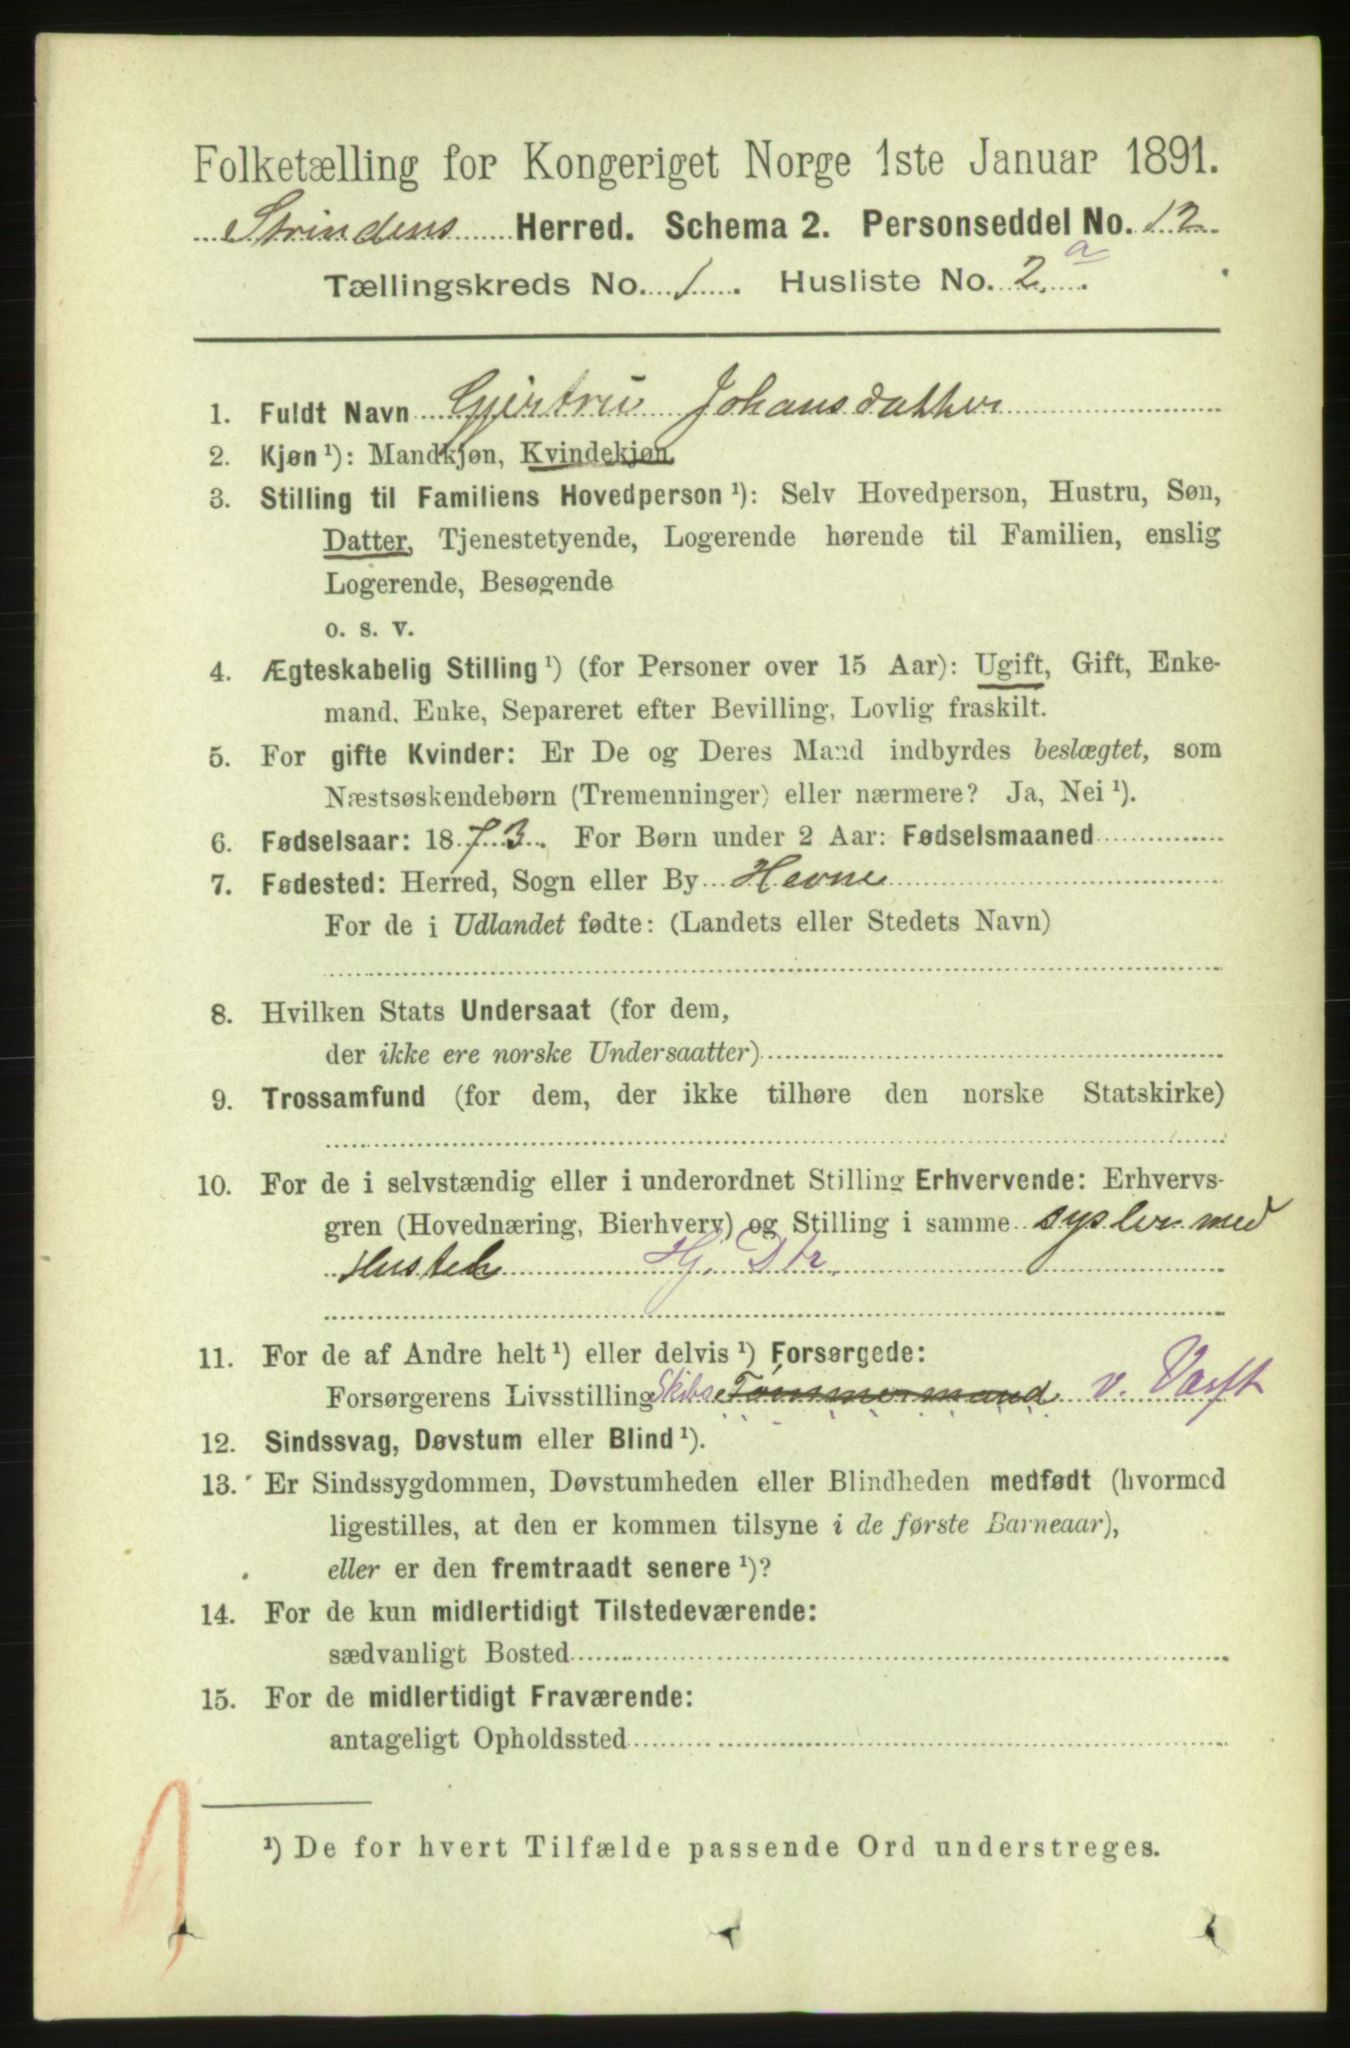 Folketælling for Kongeriget Norge 1ste Januar 1891.
Strindens Herred. Schema 2. Personseddel No. 12.
Tællingskreds No. 1. Husliste No. 2. a
1. Fuldt Navn Gjertru Johansdatter
2. Kjøn ¹): Mandkjøn, Kvindekjøn.
3. Stilling til Familiens Hovedperson ¹): Selv Hovedperson, Hustru, Søn,
Datter, Tjenestetyende, Logerende hørende til Familien, enslig
Logerende, Besøgende
o. s. v.
4. Ægteskabelig Stilling ¹) (for Personer over 15 Aar): Ugift, Gift, Enke-
mand, Enke, Separeret efter Bevilling, Lovlig fraskilt.
5. For gifte Kvinder: Er De og Deres Mand indbyrdes beslægtet, som
Næstsøskendebørn (Tremenninger) eller nærmere? Ja, Nei ¹).
6. Fødselsaar: 1873. For Børn under 2 Aar: Fødselsmaaned
7. Fødested: Herred, Sogn eller By Hevne
For de i Udlandet fødte: (Landets eller Stedets Navn)
8. Hvilken Stats Undersaat (for dem,
der ikke ere norske Undersaatter)
9. Trossamfund (for dem, der ikke tilhøre den norske Statskirke)
10. For de i selvstændig eller i underordnet Stilling Erhvervende: Erhvervs-
gren (Hovednæring, Bierhverv) og Stilling i samme sysler med
Hj. Dtr.
11. For de af Andre helt ¹) eller delvis ¹) Forsørgede:
Forsørgerens Livsstilling Skibs Tømmermand v. Værft
12. Sindssvag, Døvstum eller Blind ¹).
13. Er Sindssygdommen, Døvstumheden eller Blindheden medfødt (hvormed
ligestilles, at den er kommen tilsyne i de første Barneaar),
eller er den fremtraadt senere ¹)?
14. For de kun midlertidigt Tilstedeværende:
sædvanligt Bosted
15. For de midlertidigt Fraværende:
antageligt Opholdssted
¹) De for hvert Tilfælde passende Ord understreges.